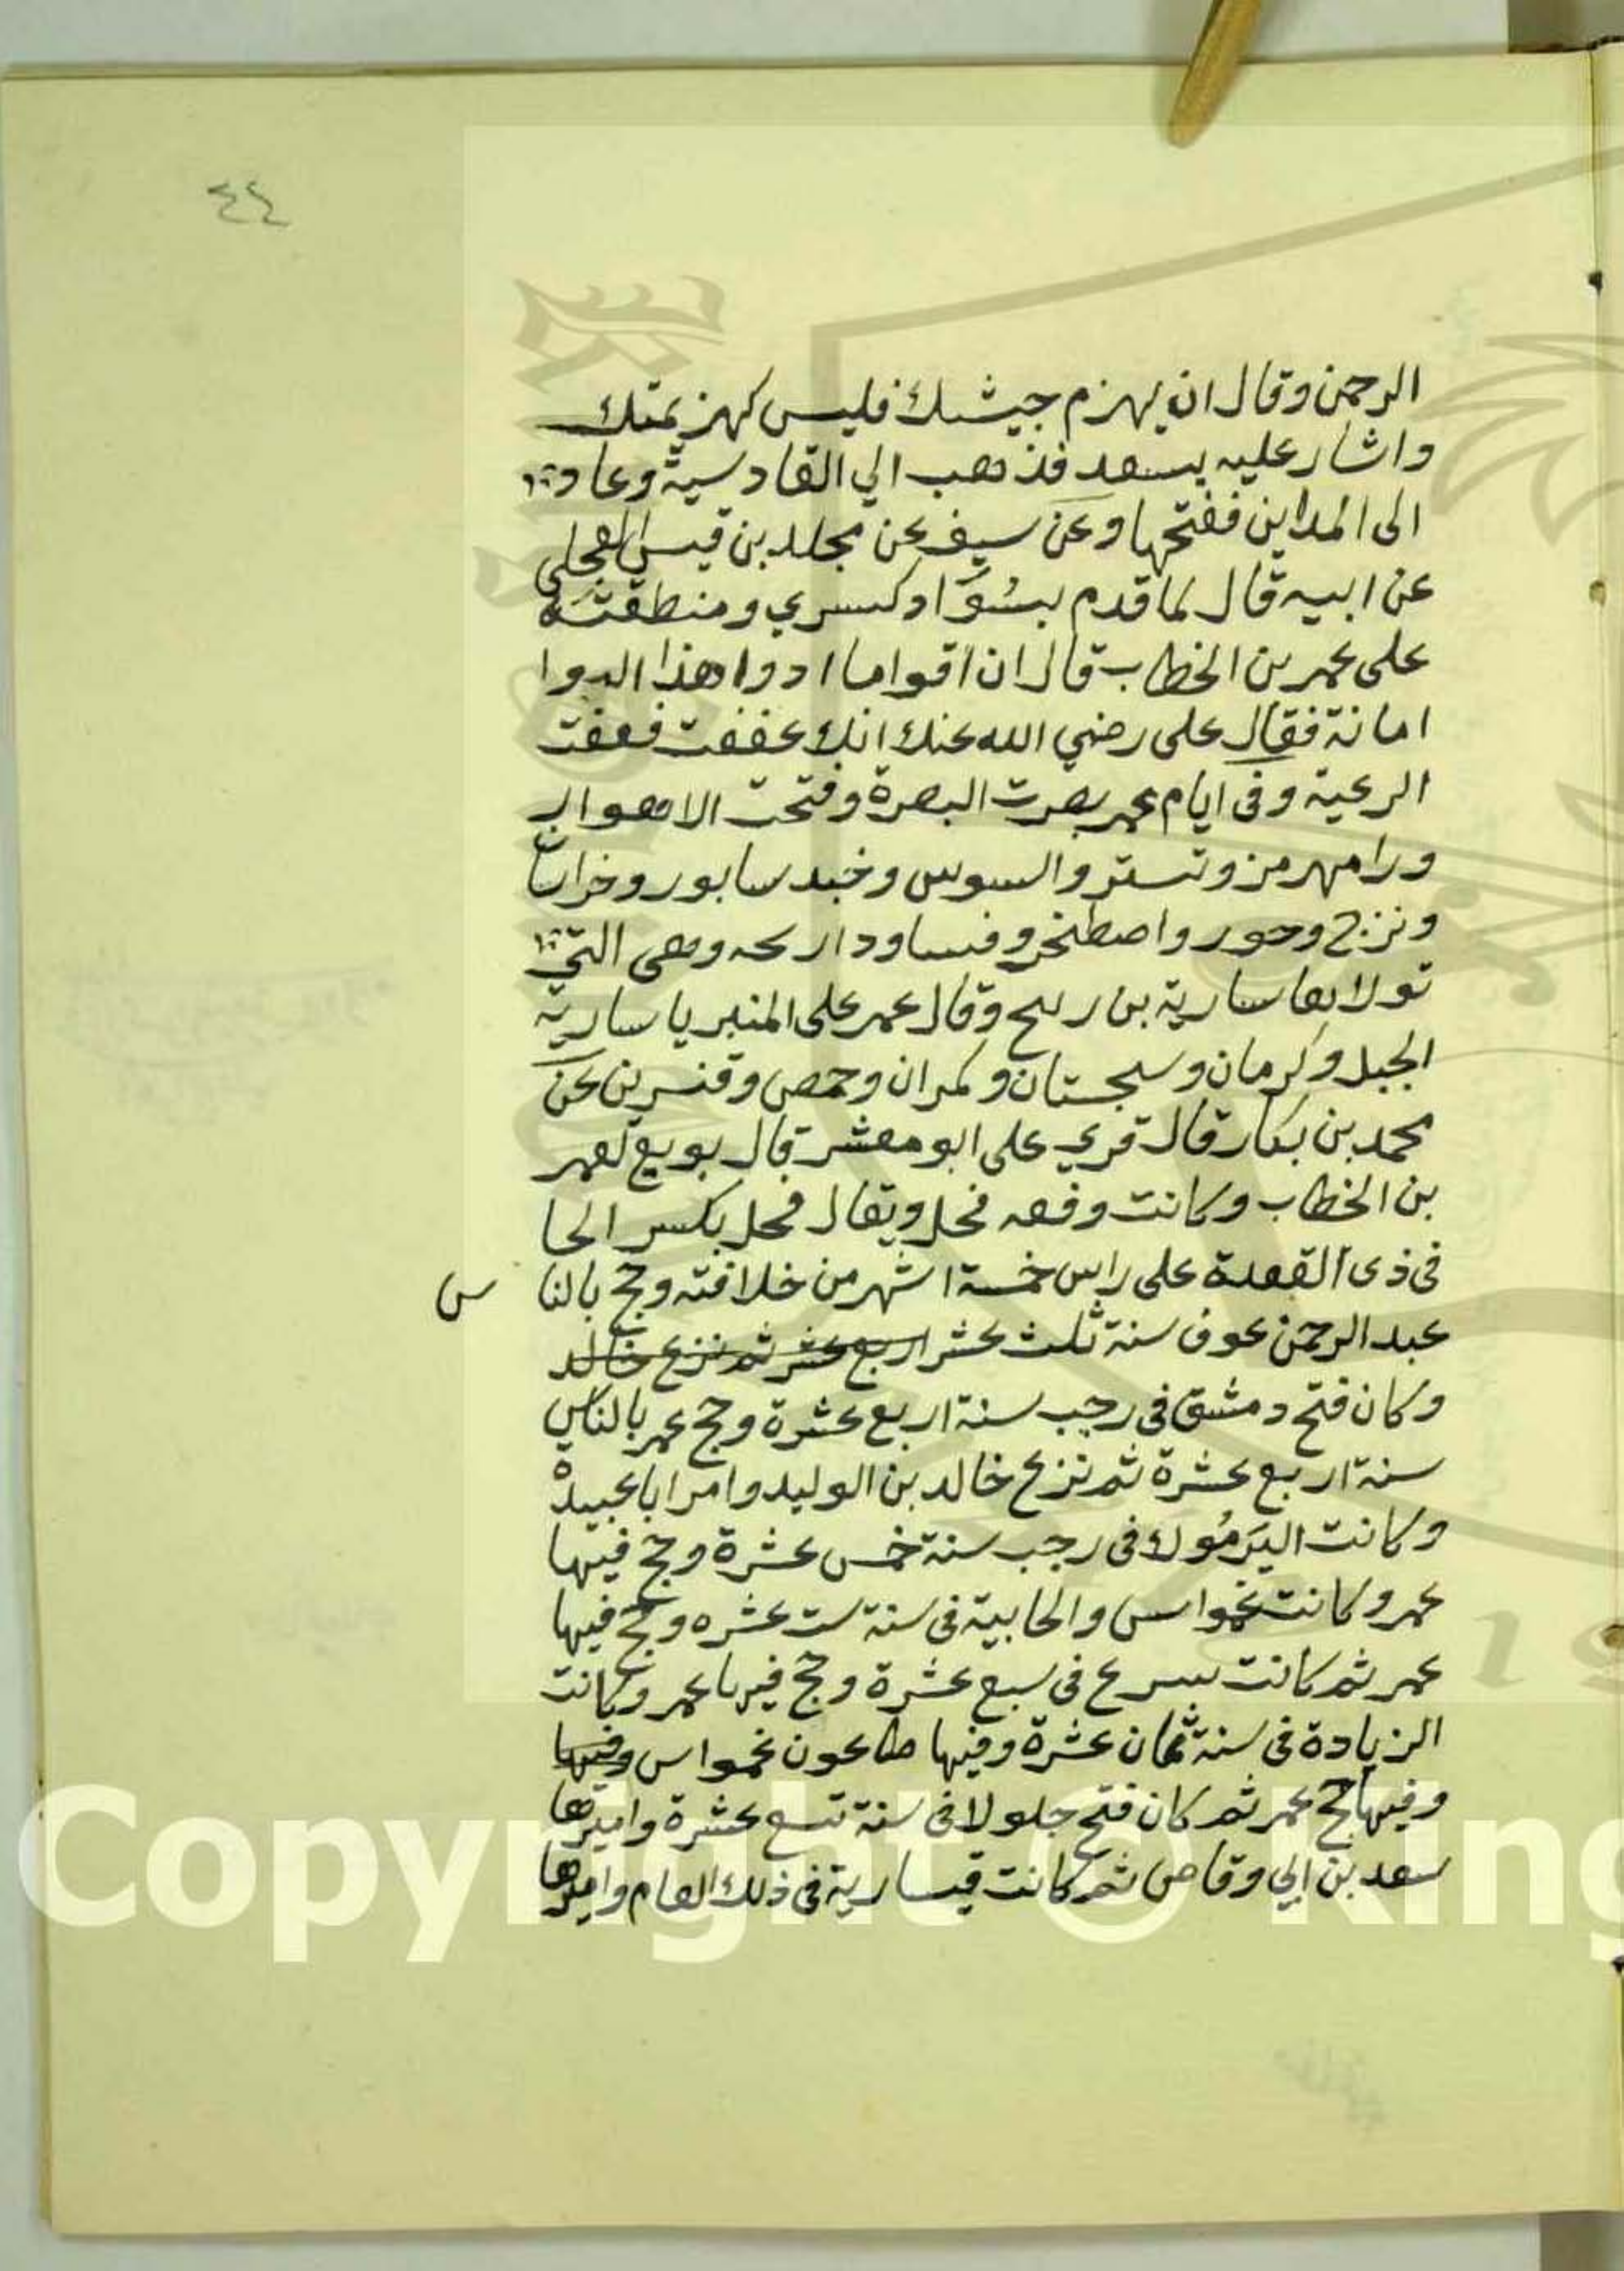 ٤٤
الرحمن وقال ان يهزم جيشك فليس كهزيمتك
واشار عليه بسعد فذهب الي القادسية وعاد
الى المداين ففتحها وعن سيف عن مجلد بن قيس العجلي
عن ابيه قال لما قدم بسُوَاد كسري ومنطقته
على عمر بن الخطاب قال ان اقواما ادوا هذا الدوا
امانة فقال على رضي الله عنك انك عففت فعفت
الرعية وفى ايام عمر بصرت البصرة وفتحت الاهواز
ورامهرمز وتستر والسوس وخبد سابور وخراسا
ونزج وحور واصطخر وفسا ودار بحه وهى التي
تولاها سارية بن ربيح وقال عمر على المنبر يا سارية
الجبل وكرمان وسجستان ومكران وحمص وقنسرين عن
محمد بن بكار قال قري على ابو معشر قال بويع لعمر
بن الخطاب وكانت وقعه فحل ويقال فحل بكسر الحا
فى ذى القعدة على راس خمسة اشهر من خلافته وحج بالنا س
عبد الرحمن عوف سنة ثلث عشر اربع عشر ثم نزع خالد
وكان فتح دمشق فى رجب سنة اربع عشرة وحج عمر بالناس
سنة اربع عشرة ثم نزع خالد بن الوليد وامر ابا عبيدة
وكانت اليَرمُوك فى رجب سنة خمس عشرة وحج فيها
عمر وكانت عمواس والجابية فى سنة ست عشره وحج فيها
عمر ثم كانت سرع فى سبع عشرة وحج فيها عمر وكانت
الزيادة فى سنة ثمان عشرة وفيها طاعون عمواس وفيها
وفيها حج عمر ثم كان فتح جلولا فى سنة تسع عشرة واميرها
سعد بن ابي وقاص ثم كانت قيسارية فى ذلك العام واميرها
Copyright © King